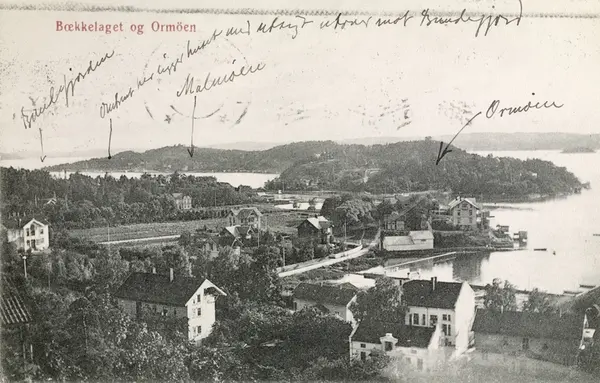 Bækkelaget og Ormöen
Omtrent her ligger huset med utsigt utover mot Bundefjord
Bundefjorden
Malmöen
Ormöen